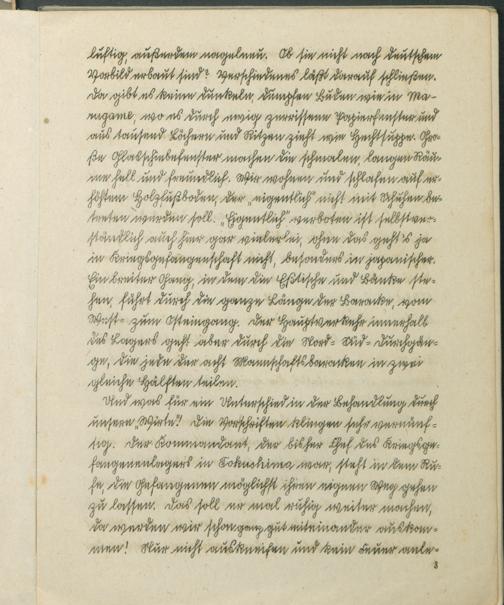 luftig, außerdem nagelneu. Ob sie nicht nach deutschem
Vorbild erbaut sind? Verschiedenes läßt darauf schließen.
Da gibt es keine dunkeln, dumpfen Buden wie in Ma-
tuyama, wo es durch ewig zerrissene Papierfenster und
aus tausend Löchern und Ritzen zieht wie Hechtsuppe. Gro-
ße Glasschiebefenster machen die schmalen, langen Räu-
me hell und freundlich. Wir wohnen und schlafen auf er-
höhtem Holzfußboden, der „eigentlich" nicht mit Schuhen be-
treten werden soll. „Eigentlich" verboten ist selbstver-
ständlich auch hier gar vielerlei, ohne das geht's ja
in Kriegsgefangenschaft nicht, besonders in japanischer.
Ein breiter Gang, in dem die Eßtische und Bänke ste-
hen, führt durch die ganze Länge der Baracke, vom
West- zum Osteingang. Der Hauptverkehr innerhalb
des Lagers geht aber durch die Nord-Süd-Durchgän-
ge, die jede der acht Mannschaftsbaracken in zwei
gleiche Hälften teilen.
Und was für ein Unterschied in der Behandlung durch
unsern „Wirte"! Die Vorschriften klingen sehr vernünf-
tig. Der Kommandant, der bisher Chef des Kriegsge-
fangenenlagers in Tokushima war, steht in dem Ru-
fe, die Gefangenen möglichst ihren eignen Weg gehen
zu lassen. Das soll er mal ruhig weiter machen,
da werden wir schon ganz gut miteinander auskom-
men! Nur nicht auskneifen und kein Feuer anle-
3